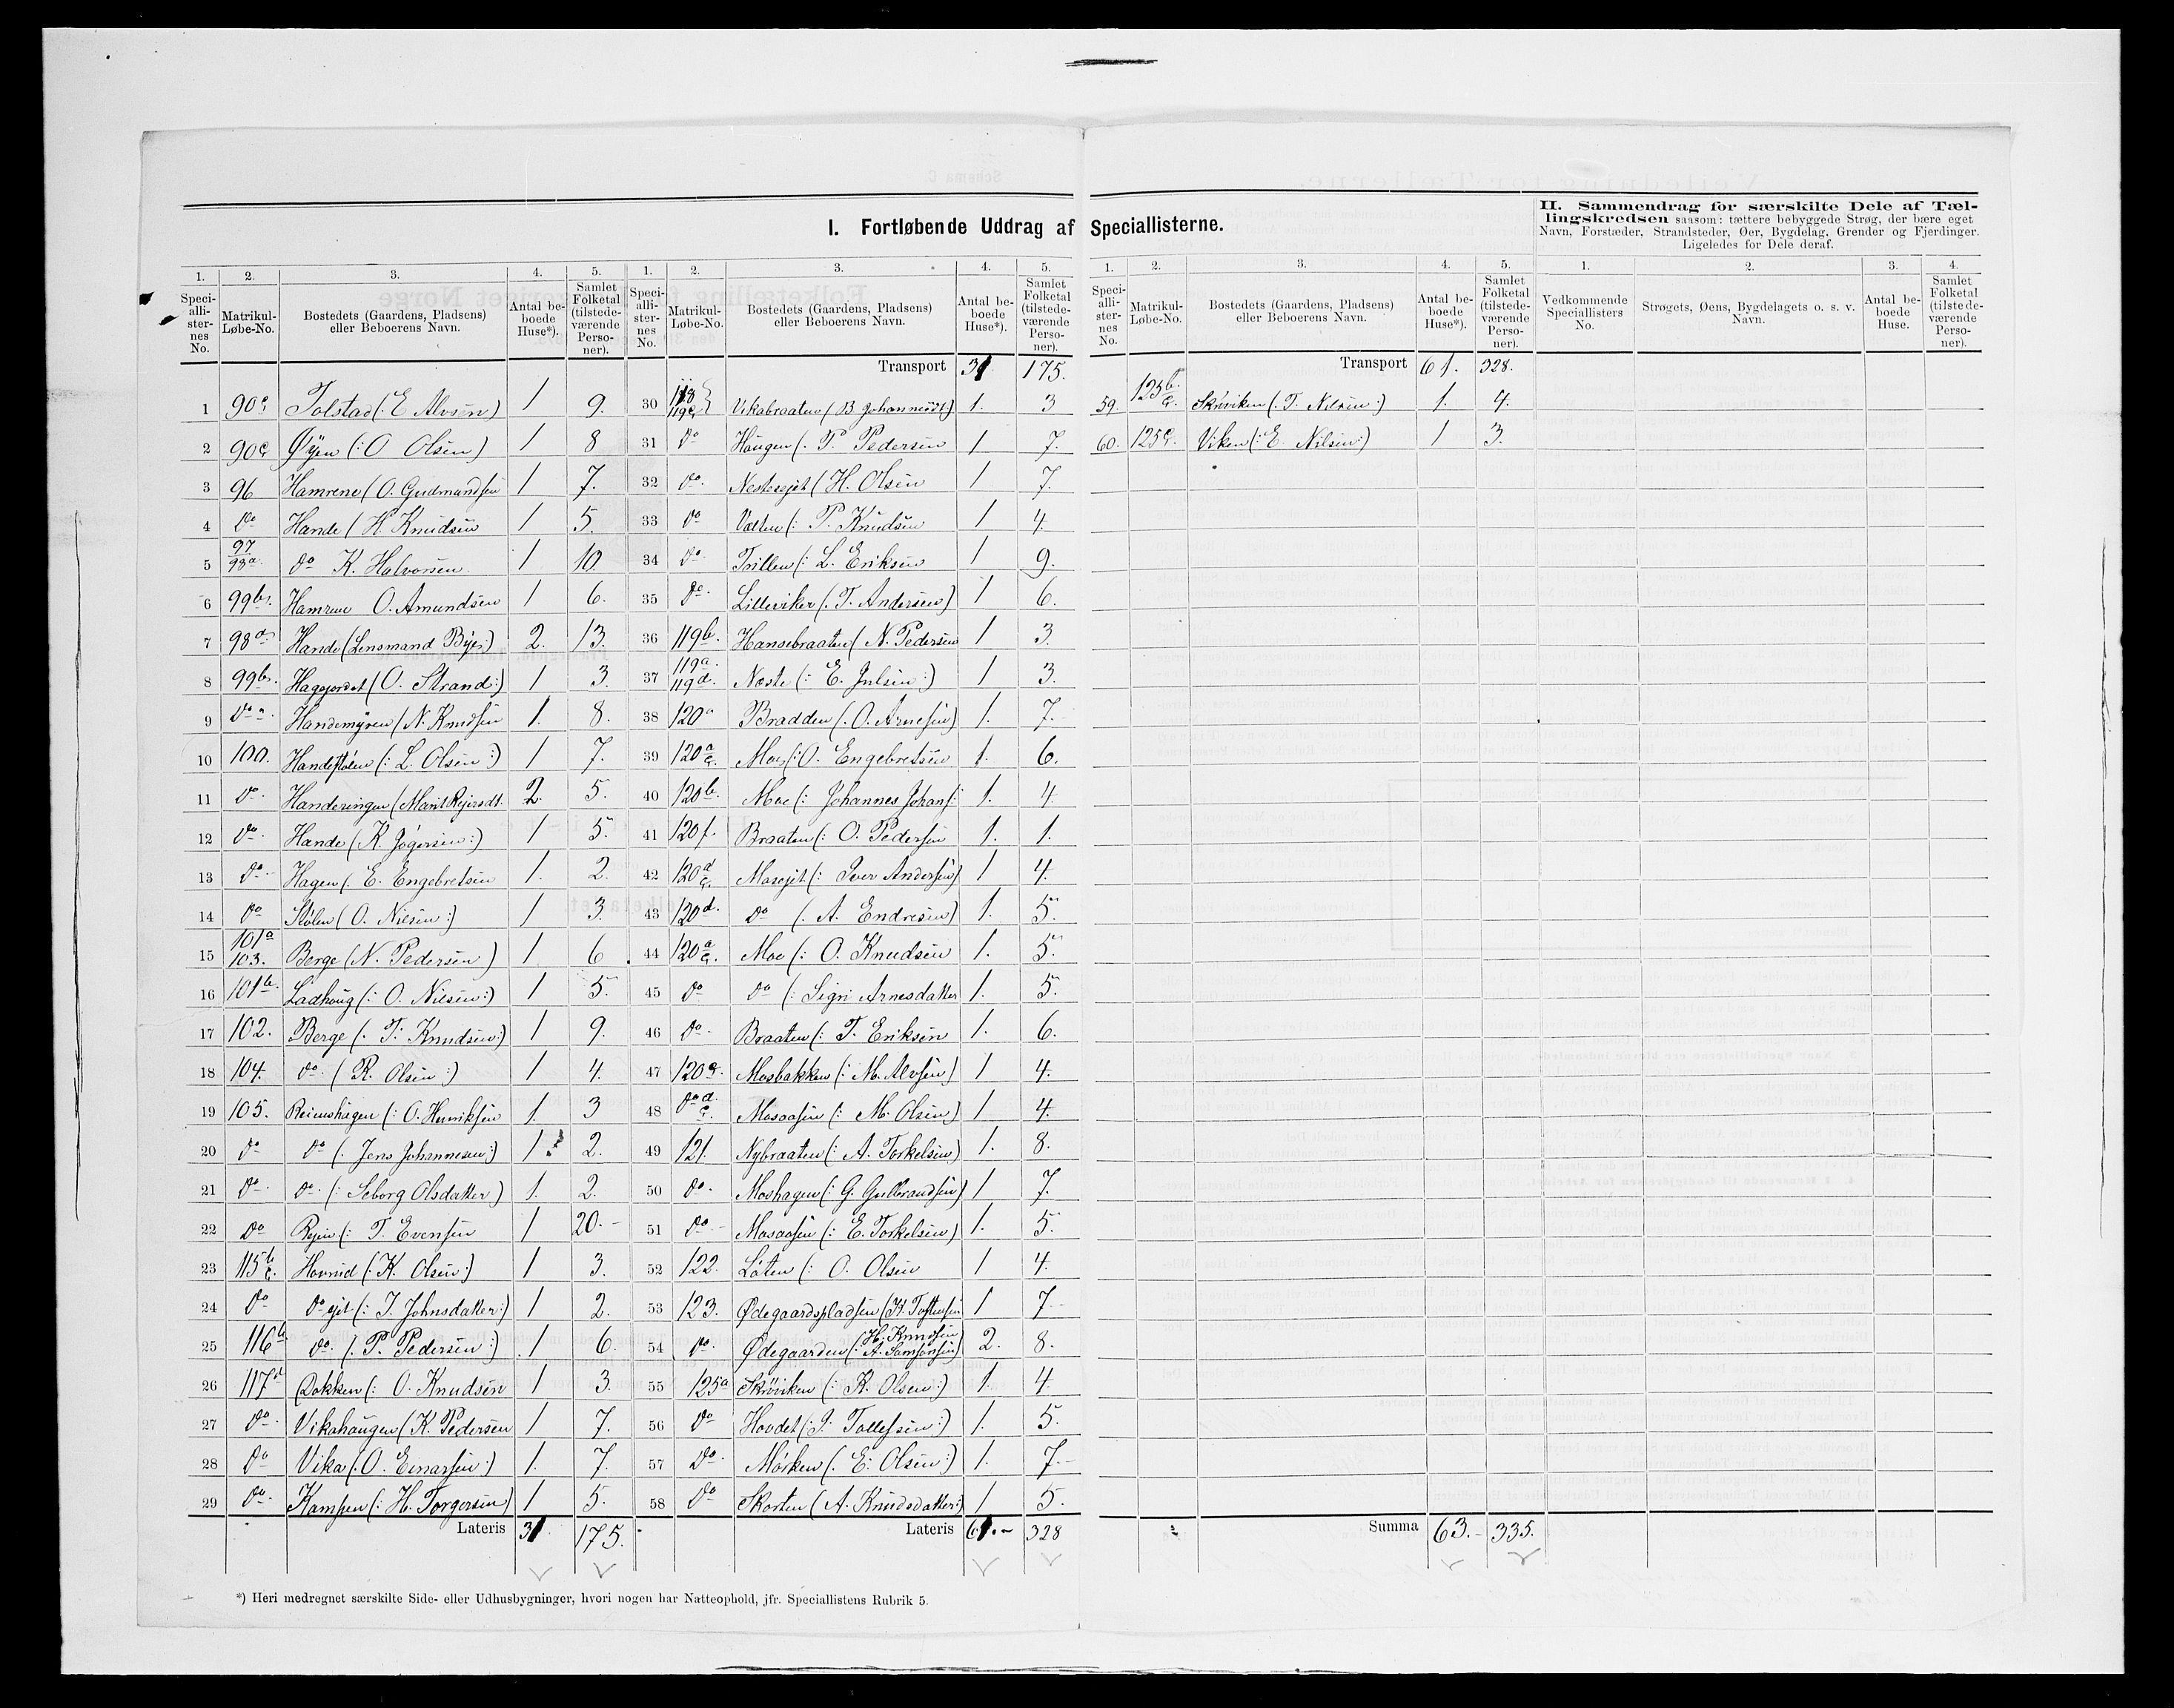 I. Fortløbende Uddrag af Speciallisterne.
II. Sammendrag for særskilte Dele af Tæl-
lingskredsen saasom: tættere bebyggede Strøg, der bære eget
Navn, Forstæder, Strandsteder, Øer, Bygdelag, Grender og Fjerdinger.
Ligeledes for Dele deraf.
1. 2. 3. 4. 5.
Speci-alli-ster-nes No. Matrikul-Løbe-No. Bostedets (Gaardens, Pladsens) eller Beboerens Navn. Antal be-boede Huse*). Samlet Folketal (tilstede-værende Perso-ner).
1 90 Tolstad (: E Alvsen) 1 9.
2 90 Øyen (: O Olsen) 1 8
3 96 Hamrene (O. Gudmundsen 1 7.
4 do Hande (H. Knudsen 1 5.
5 97 98a. do K. Halvorsen 1 10
6 99b. Hamrene O. Amundsen 1 6.
7 98a Hande (Lensmand Bÿe:) 2. 13.
8 99b. Hagejordet (O. Strand:) 1 3.
9 do Handemyren (N. Knudsen 1. 8.
10 100. Handestølen (: L. Olsen:) 1 7.
11 do Handeringen (Marit 2. 5.
12 do Hande (K. :) 1 5.
13 do Hagen (: E. Engebretsen 1. 2.
14 do Stølen (O. Nilsen:) 1 3.
15 101a 103. Berge (N. Pedersen) 1 6
16 101b. Ladhoug (: O. Nilsen:) 1 5.
17 102. Berge (: T. Knudsen:) 1 9.
18 104. do (R. Olsen:) 1 4.
19 105. (: O. Henriksen 1. 3
20 do do (: Jens Johannesen:) 1 2.
21 do do (: Seborg Olsdatter) 1. 2.
22 do Rejen (: T. Evensen 1 20.
23 115b c. Hovrud (: K. Olsen:) 1 3.
24 do do (: J. Johnsdatter:) 1 2.
25 116 do (: P. Pedersen:) 1 6.
26 117 Dokken (: O. Knudsen 1 3.
27 do Vikahaugen (K. Pedersen 1 7.
28 do Vika (: O. Einarsen:) 1. 7.
29 do Kampen (: H. Torgersen) 1 5.
Lateris 31 175.
1. 2. 3. 4. 5.
Speci-alli-ster-nes No. Matrikul-Løbe-No. Bostedets (Gaardens, Pladsens) eller Beboerens Navn. Antal be-boede Huse*). Samlet Folketal (tilstede-værende Perso-ner).
Transport 31 175.
30 118 119 Vikabraaten (B. ) 1. 3
31 do Haugen (: P. Pedersen 1 7.
32 do (H. Olsen 1 7.
33 do (: P. Knudsen 1 4.
34 do Trillen (: L. Eriksen 1 9.
35 do Lilleviken (: T. Andersen) 1 6.
36 119b. Hansebraaten (N. Pedersen 1 3.
37 119a. 119d. Neste (: E. Julsen:) 1 3.
38 120 Bradden (: O. Arnesen) 1. 7.
39 120a Moe (: O. Engebretsen 1. 6.
40 120b. Moe (: Johannes 1. 4.
41 120f. Braaten (: O. Pedersen 1. 1.
42 120d (: Iver Andersen) 1 4.
43 120d. do (: A. Endresen) 1. 5.
44 120a Moe (: O. Knudsen 1. 5.
45 do do (: Sigri Arnesdatter 1. 5.
46 do Braaten (: T. Eriksen 1. 6.
47 120 Moebakken (: M. Alvsen) 1 4.
48 do d. Moeaasen (: M. Olsen) 1 4.
49 121. Nybraaten (: A. Torkelsen) 1. 8.
50 do Moehagen (: G. Gulbrandsen) 1 7.
51 do Moeaasen (: E. Torkelsen) 1. 5.
52 122. Løten (: O. Olsen 1 4.
53 123. Ødegaardspladsen (K. Tostensen 1 7.
54 do Ødegaarden (: H. Knudsen A. Samsonsen) 2. 8.
55 125a Skrøviken (: K. Olsen:) 1. 4.
56 do Hovdet (: J. Tollefsen:) 1. 5.
57 do Mørken (: E. Olsen:) 1. 7.
58 do Skorten (A. Knudsdatter:) 1 5.
Lateris 61. 328
1. 2. 3. 4. 5.
Speci-alli-ster-nes No. Matrikul-Løbe-No. Bostedets (Gaardens, Pladsens) eller Beboerens Navn. Antal be-boede Huse*). Samlet Folketal (tilstede-værende Perso-ner).
Transport 61. 328.
59. 125b. c. Skrøviken (: T. Nilsen:) 1. 4.
60. 125c. Viken (: E. Nilsen:) 1 3.
Summa 63. 335.
1. 2. 3. 4.
Vedkommende Speciallisters No. Strøgets, Øens, Bygdelagets o. s. v. Navn. Antal be-boede Huse. Samlet Folketal (tilstede-værende Perso-ner).
*) Heri medregnet særskilte Side- eller Udhusbygninger, hvori nogen har Natteophold, jfr. Speciallistens Rubrik 5.